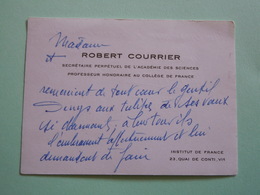 Madame
et ROBERT COURRIER
SECRÉTAIRE PERPÉTUEL DE L'ACADÉMIE DES SCIENCES
PROFESSEUR HONORAIRE AU COLLÈGE DE FRANCE
remercient de tout cœur le gentil
aux tulipes de ses vœux
si charmants; à leur tour ils
l'embrassent affectueusement et lui
demandent de
INSTITUT DE FRANCE
23, QUAI DE CONTI, VI